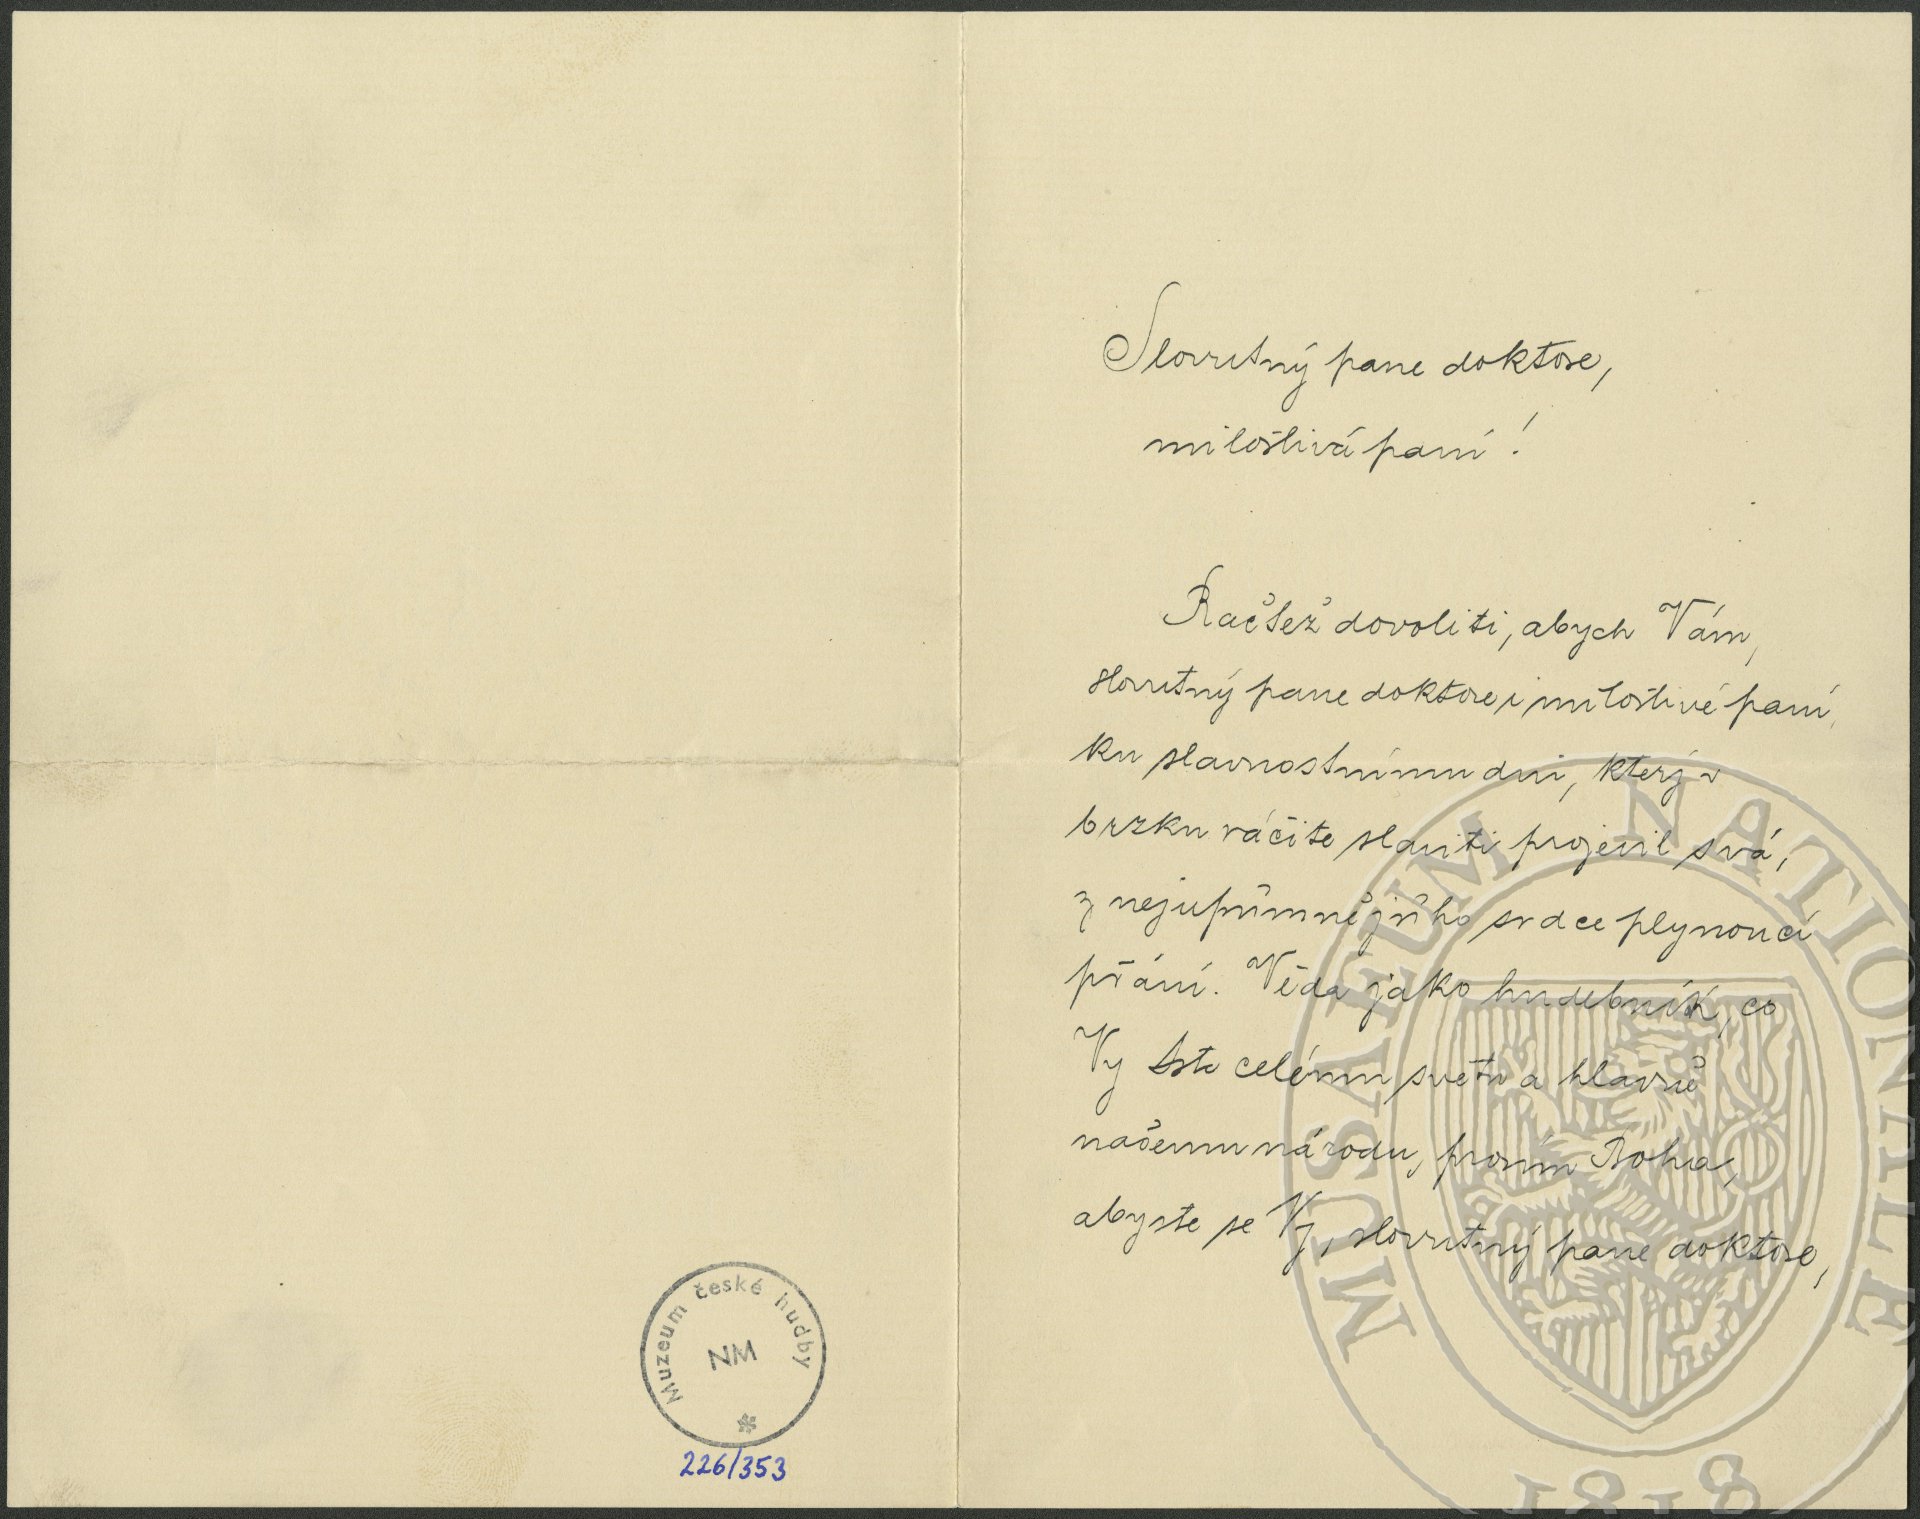 Slovutný pane doktore,
milostivá paní!
Račtež dovoliti, abych Vám,
slovutný pane doktore i milostivé paní,
ku slavnostnímu dni, který v
brzku ráčíte slaviti projevil svá,
z nejupřímnějšího srdce plynoucí
přání. Věda jako hudebník, co
Vy jste celému světu a hlavně
našemu národu, prosím Boha,
abyste se Vy, slovutný pane doktore,
Muzeum české hudby
NM
226/353
MUSAEUM NATIONALE
1818